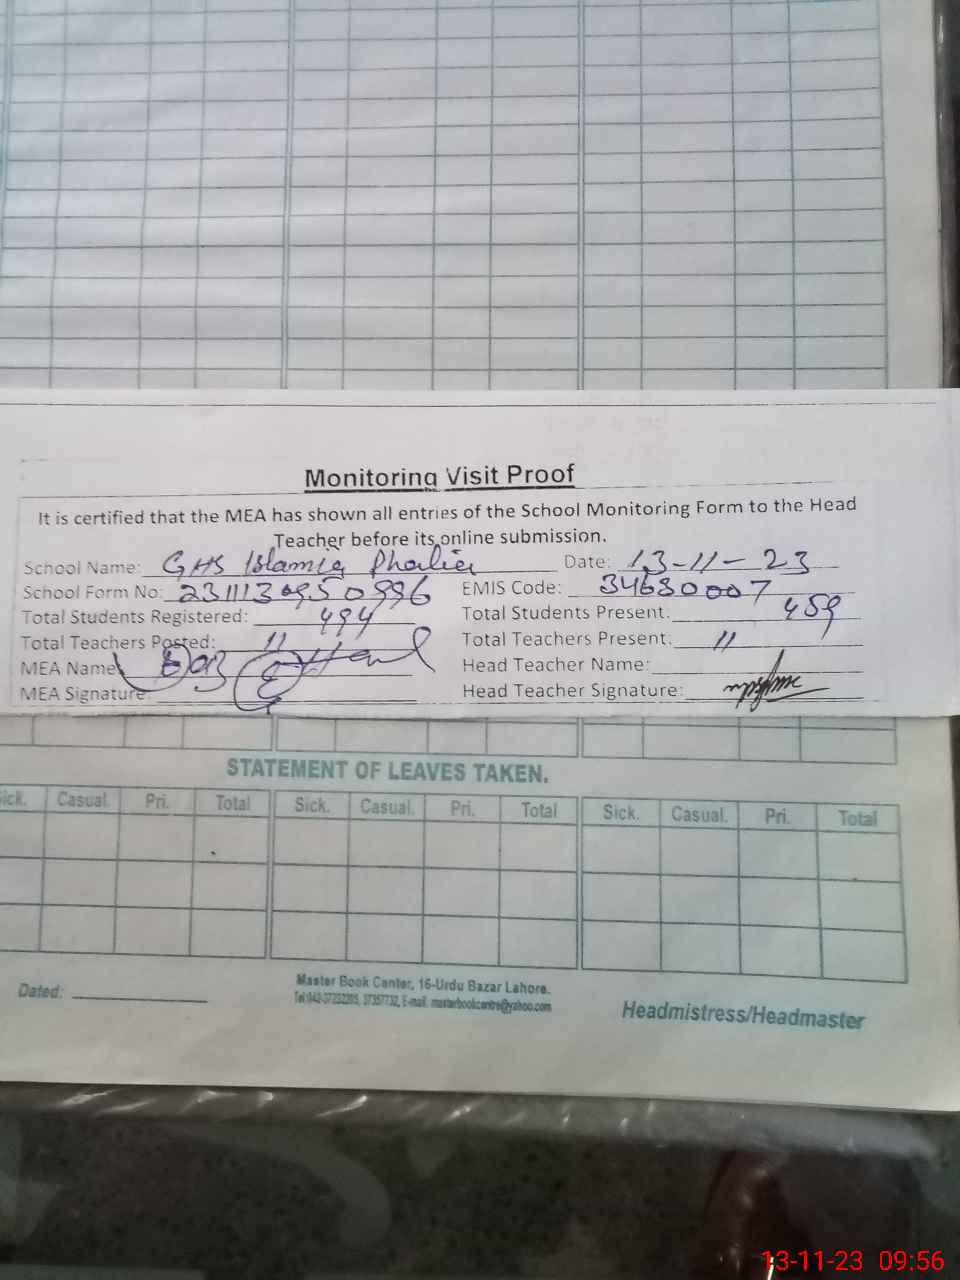 Monitoring Visit Proof
It is certified that the MEA has shown all entries of the School Monitoring Form to the Head
Teacher before its online submission.
School Name: GHS Islamia Phalia Date: 13-11-23
School Form No: 231113095 EMIS Code: 34630007
Total Students Registered: 494 Total Students Present: 459
Total Teachers Posted: 11 Total Teachers Present: 11
MEA Name: Head Teacher Name:
MEA Signature: Head Teacher Signature:
STATEMENT OF LEAVES TAKEN.
Sick. Casual. Pri. Total Sick. Casual. Pri. Total Sick. Casual. Pri. Total
Dated: Master Book Center, 16-Urdu Bazar Lahore.
E-mail: masterbookcentre@yahoo.com
Headmistress/Headmaster
13-11-23 09:56